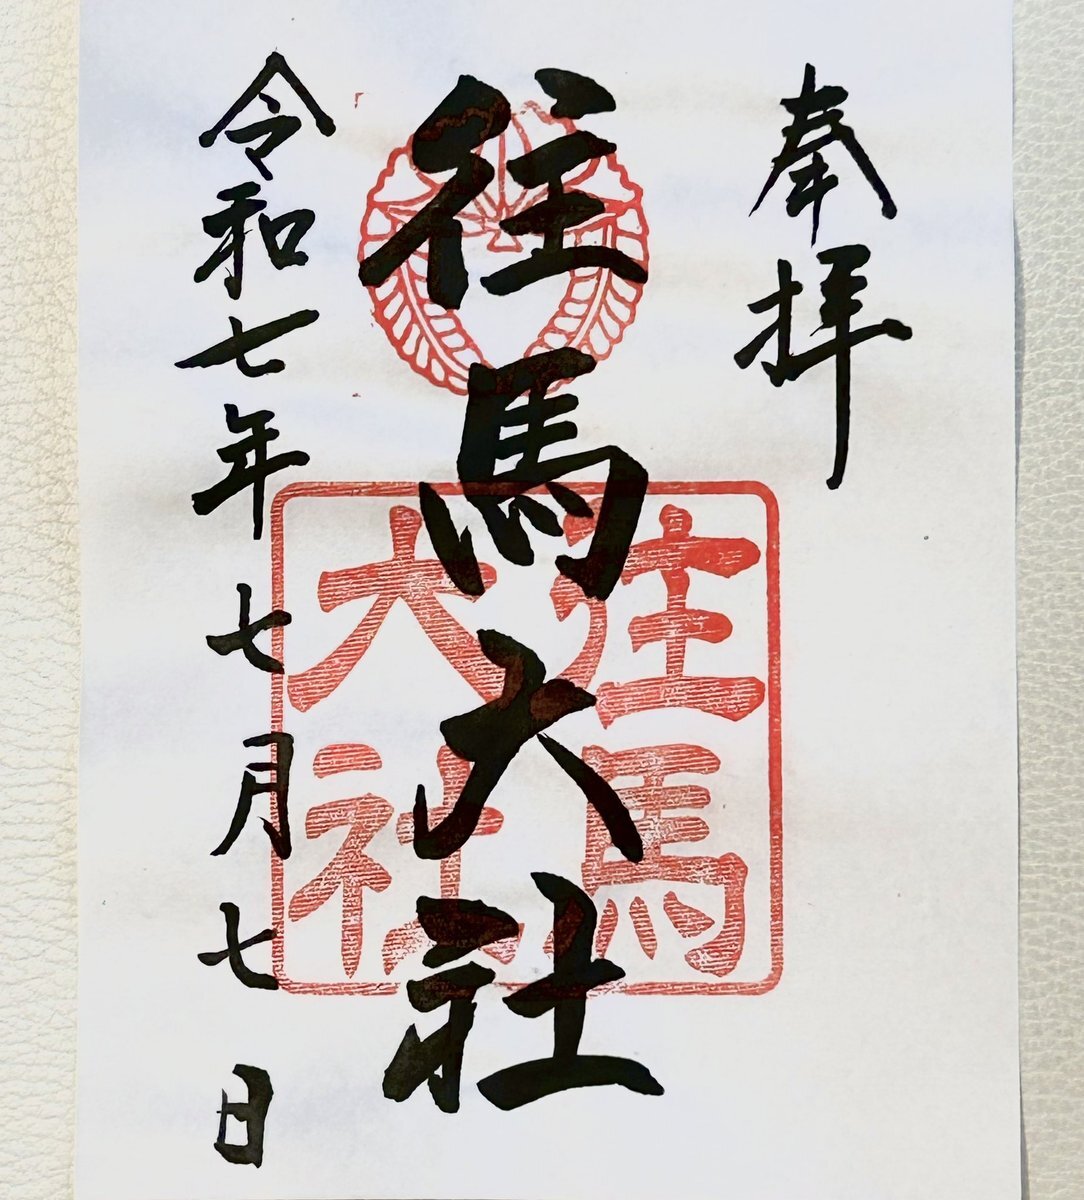 奉拝
往馬大社
往馬
大社
令和七年七月七日